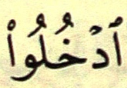 ٱدْخُلُوا۟